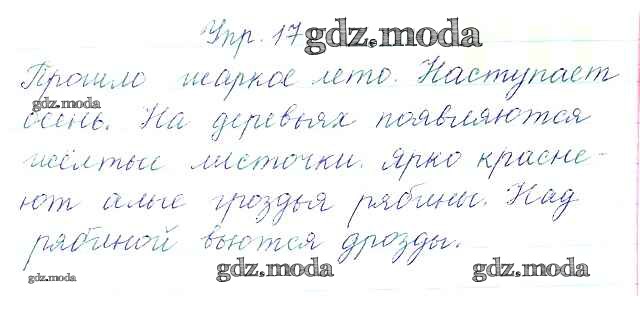 Упр. 17 gdz.moda
Прошло жаркое лето. Наступает
gdz.moda
осень. На деревьях появляются
жёлтые листочки. Ярко красне-
ют алые гроздья рябины. Над
рябиной вьются дрозды.
gdz.moda gdz.moda gdz.moda